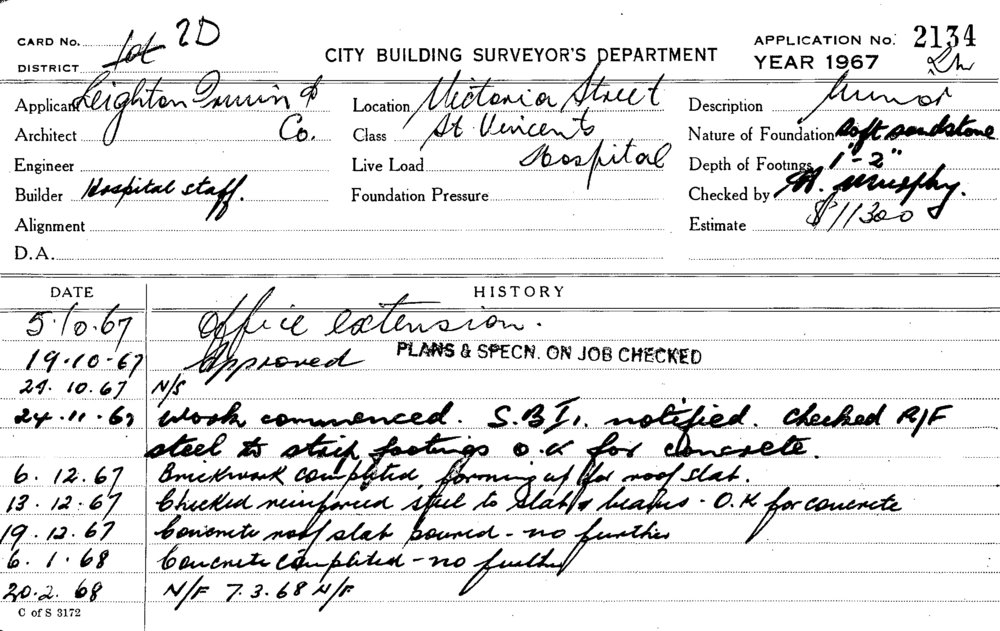 CARD No. Lot 2D
DISTRICT
CITY BUILDING SURVEYOR'S DEPARTMENT
APPLICATION No. 2134
YEAR 1967
Applicant Leighton Irwin &
Architect Co.
Engineer
Builder Hospital staff.
Alignment
D.A.
Location Victoria Street
Class St Vincents
Live Load Hospital
Foundation Pressure
Description Minor
Nature of Foundation Soft sandstone
Depth of Footings 1"-2"
Checked by Murphy.
Estimate $11300
DATE HISTORY
5.10.67 Office extension.
19.10.67 Approved PLANS & SPECN. ON JOB CHECKED
24.10.67 N/S
24.11.67 Work commenced. S.B.I. notified. Checked R/F
steel to strip footings O.K for concrete.
6.12.67 Brickwork completed, forming up for roof slab.
13.12.67 Checked reinforced steel to slab & beams - O.K for concrete
19.12.67 Concrete roof slab poured - no further
6.1.68 Concrete completed - no further
20.2.68 N/F 7.3.68 N/F
C of S 3172